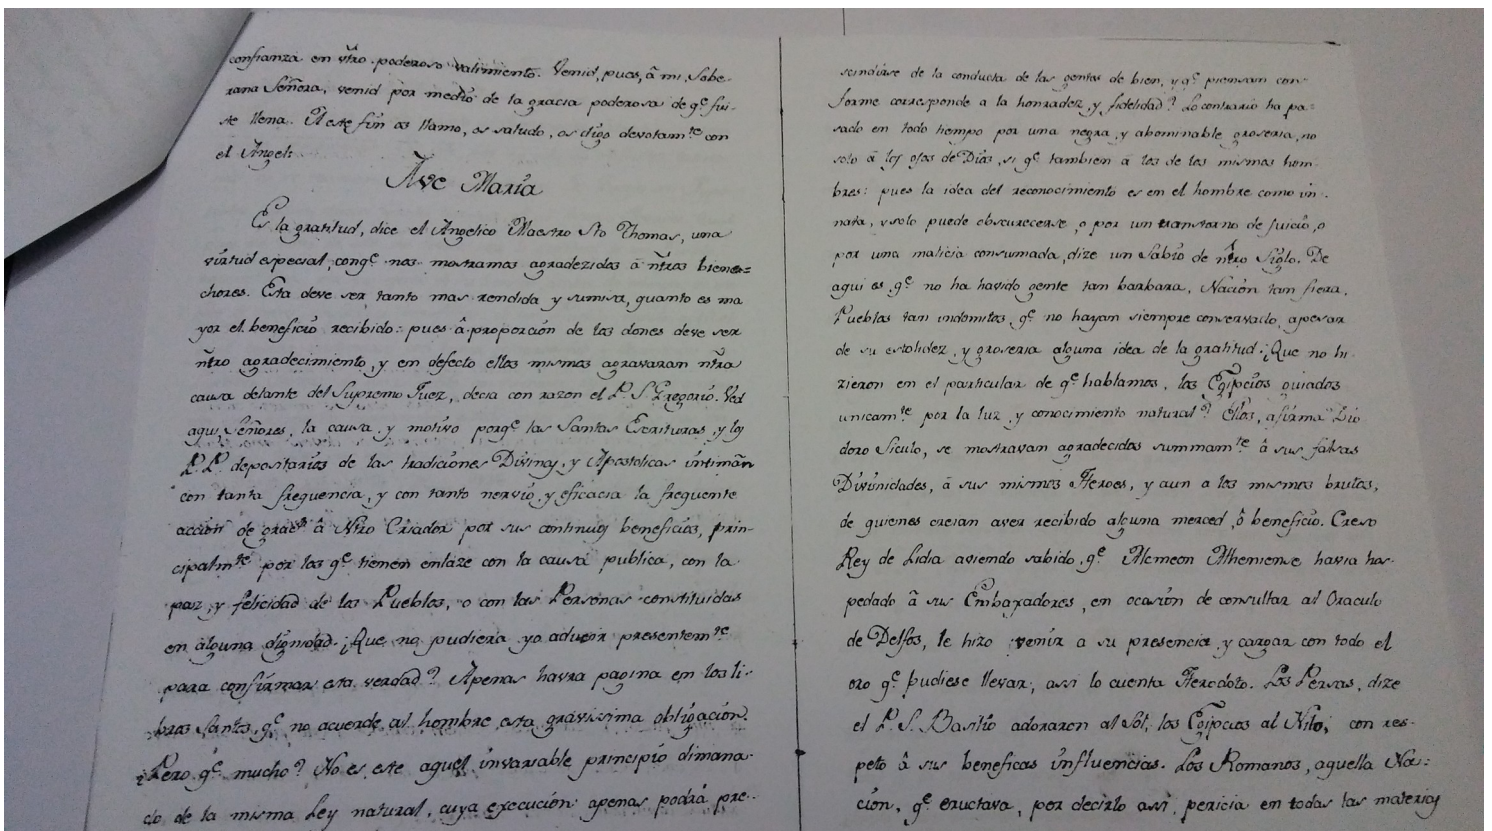 confianza en vtro. poderoso valimiento. Venid, pues, â mi Sobe-
rana Señora, venid por medio de la gracia poderosa de qe. fui-
ste llena. A este fin os llamo, os saludo, os digo devotamte con
el Angel:
Ave Maria
Es la gratitud, dice el Angelico Maestro Sto Thomas, una
virtud especial, con qe. nos mostramos agradezidos â ntros biene=
chores. Esta deve ser tanto mas rendida y sumisa, quanto es ma
yor el beneficio recibido: pues â proporción de los dones deve ser
ntro agradecimiento, y en defecto ellos mismos agravaran ntra
causa delante del Supremo Juez, decia con razon el P. S. Gregorio. Ved
aqui Señores, la causa, y motivo porqe las Santas Escrituras, y los
P.P. depositarios de las tradiciones Divinas, y Apostolicas intiman
con tanta frequencia, y con tanto nervio, y eficacia la frequente
acción de gras. â Ntro Criador por sus continuos beneficios, prin-
cipalmte por los qe. tienen enlaze con la causa publica, con la
paz, y felicidad de los Pueblos, o con las Personas constituidas
en alguna dignidad. ¡Que no pudiera yo aducir presentemte
para confirmar esta verdad? Apenas havra pagina en los li-
bros Santos, qe. no acuerde al hombre esta gravissima obligación.
¿Pero qe. mucho? No es este aquel invariable principio dimana-
do de la misma Ley natural, cuya execución apenas podrá pre-
scindirse de la conducta de las gentes de bien, y qe. piensan con-
forme corresponde a la honradez, y fidelidad? Lo contrario ha pa-
sado en todo tiempo por una negra, y abominable groseria, no
solo â los ojos de Dios, si qe. tambien â los de los mismos hom-
bres: pues la idea del reconocimiento es en el hombre como in-
nata, y solo puede obscurecerse, o por un transtorno de juicio, o
por una malicia consumada, dize un Sabio de ntro Siglo. De
aqui es, qe. no ha havido gente tan barbara, Nación tan fiera,
Pueblos tan indomitos, qe. no hayan siempre conservado, apesar
de su estolidez, y groseria alguna idea de la gratitud. ¡Que no hi-
zieron en el particular de qe. hablamos, los Egipcios guiados
unicamte por la luz, y conocimiento natural? Ellos, afirma Dio
doro Siculo, se mostravan agradecidos summamte â sus falsas
Divinidades, â sus mismos Heroes, y aun a los mismos brutos,
de quienes creian aver recibido alguna merced, ô beneficio. Creso
Rey de Lidia aviendo sabido, qe. Alcmeon Atheniense havia hos-
pedado â sus Embaxadores, en ocasión de consultar al Oraculo
de Delfos, le hizo venir a su presencia, y cargar con todo el
oro qe. pudiese llevar, assi lo cuenta Herodoto. Los Persas, dize
el P. S. Basilio adoraron al Sol, los Egipcios al Nilo, con res-
peto â sus beneficas influencias. Los Romanos, aquella Na=
ción, qe. eructava, por decirlo assi, pericia en todas las materias